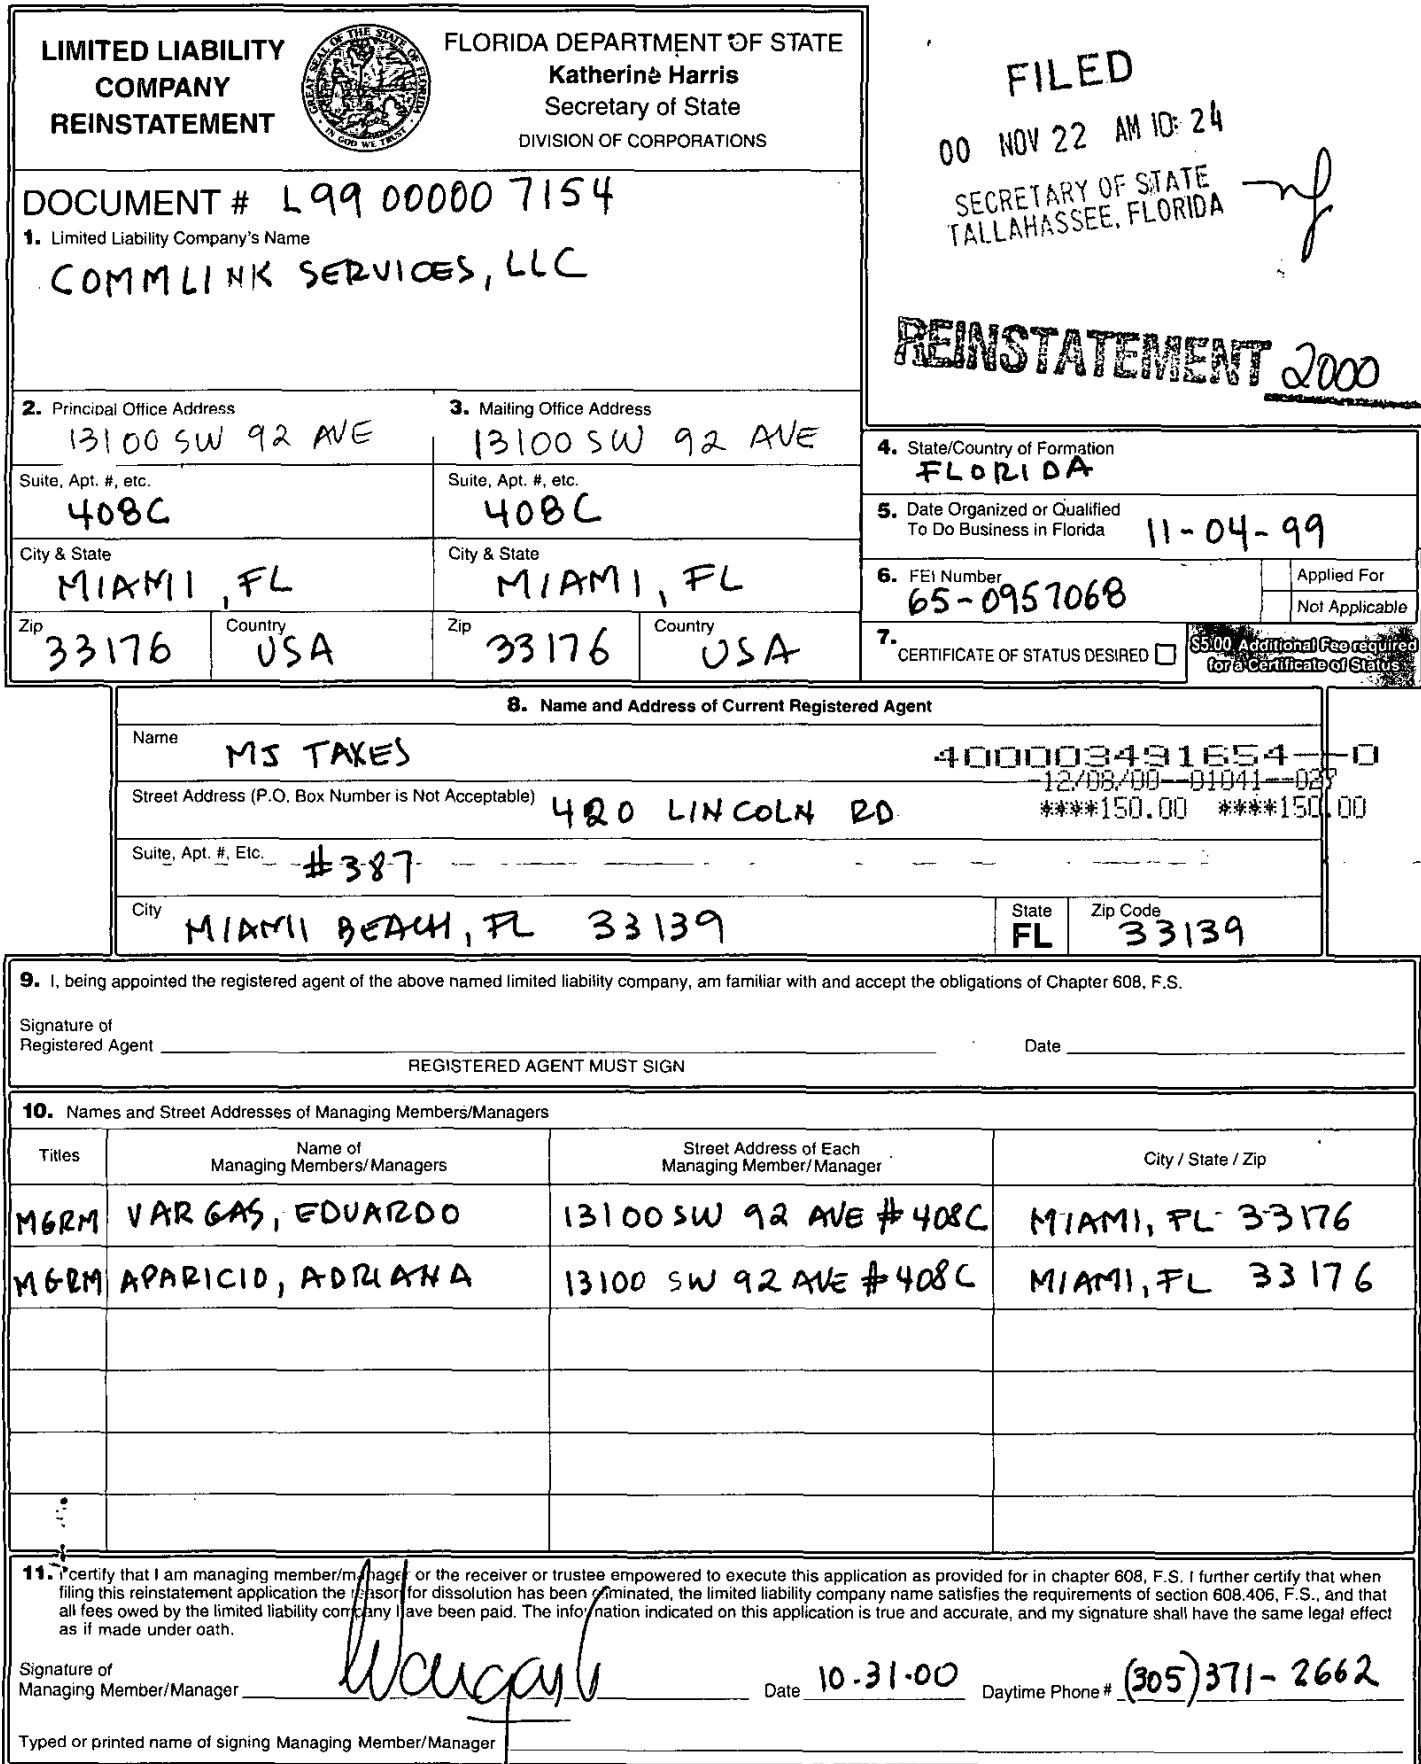 LIMITED LIABILITY
COMPANY
REINSTATEMENT
GREAT SEAL OF THE STATE OF FLORIDA
IN GOD WE TRUST
FLORIDA DEPARTMENT OF STATE
Katherine Harris
Secretary of State
DIVISION OF CORPORATIONS
FILED
00 NOV 22 AM 10:24
SECRETARY OF STATE
TALLAHASSEE, FLORIDA
DOCUMENT # L99 00000 7154
1. Limited Liability Company's Name
COMMLINK SERVICES, LLC
REINSTATEMENT 2000
2. Principal Office Address
13100 SW 92 AVE
3. Mailing Office Address
13100 SW 92 AVE
Suite, Apt. #, etc.
408C
Suite, Apt. #, etc.
408C
City & State
MIAMI, FL
City & State
MIAMI, FL
Zip
33176
Country
USA
Zip
33176
Country
USA
4. State/Country of Formation
FLORIDA
5. Date Organized or Qualified
To Do Business in Florida 11-04-99
6. FEI Number
65-0957068
Applied For
Not Applicable
7. CERTIFICATE OF STATUS DESIRED
$5.00 Additional Fee required
for a Certificate of Status
8. Name and Address of Current Registered Agent
Name MJ TAXES
400003491654--0
-12/08/00--01041--027
****150.00 ****150.00
Street Address (P.O. Box Number is Not Acceptable) 420 LINCOLN RD
Suite, Apt. #, Etc. #387
City MIAMI BEACH, FL 33139
State
FL
Zip Code
33139
9. I, being appointed the registered agent of the above named limited liability company, am familiar with and accept the obligations of Chapter 608, F.S.
Signature of
Registered Agent
Date
REGISTERED AGENT MUST SIGN
10. Names and Street Addresses of Managing Members/Managers
Titles
Name of
Managing Members/Managers
Street Address of Each
Managing Member/Manager
City / State / Zip
MGRM VARGAS, EDUARDO 13100 SW 92 AVE #408C MIAMI, FL 33176
MGRM APARICIO, ADRIANA 13100 SW 92 AVE #408C MIAMI, FL 33176
11. I certify that I am managing member/manager or the receiver or trustee empowered to execute this application as provided for in chapter 608, F.S. I further certify that when
filing this reinstatement application the reason for dissolution has been eliminated, the limited liability company name satisfies the requirements of section 608.406, F.S., and that
all fees owed by the limited liability company have been paid. The information indicated on this application is true and accurate, and my signature shall have the same legal effect
as if made under oath.
Signature of
Managing Member/Manager
Date 10-31-00
Daytime Phone # (305)371-2662
Typed or printed name of signing Managing Member/Manager